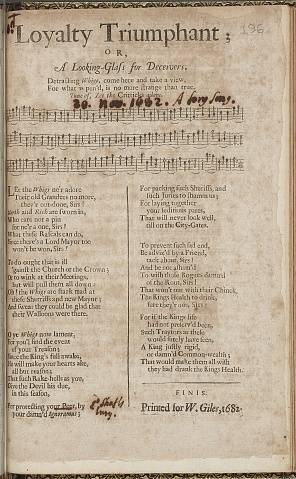 196.
Loyalty Triumphant;
OR,
A Looking-Glass for Deceivers.
Detracting Whigs, come here and take a view,
For what is pen'd, is no more strange than true.
Tune of,
20. Nov. 1682. A Tory Song.
LEt the Whigs ne'r adore
Their old Grandees no more,
they're out-done, Sirs!
and Rich are sworn in,
Who cares not a pin
for ne'r a one, Sirs!
What these Rascals can do,
Since there's a Lord Mayor too
won't be won, Sirs!
To do ought that is ill
'gainst the Church or the Crown;
Or to wink at their Meetings,
but will pull them all down:
Oh! the Whigs are stark mad at
these Sheriffs and new Mayor;
And swear they could be glad that
their Walloons were there.
O ye Whigs now lament,
For you'l find the event
of your Treason;
Since the King's full awake,
He will make your hearts ake,
all but reason;
That such Rake-hells as you,
Give the Devil his due,
in this season,
For protecting your Peer, by
your damn'd Ignoramus;
For packing such Sheriffs, and
such Juries to shame us;
For laying together
your seditious pates,
That will never look well,
till on the City-Gates.
To prevent such sad end,
Be advis'd by a Friend,
tack about, Sirs!
And be not asham'd
To with those Rogues damn'd
of the Rout, Sirs!
That won't run with their Chink,
The Kings Health to drink,
fore they're out, Sirs!
For if the Kings life
had not preserv'd been,
Such Traytors as these
would surely have seen,
A King justly rigid,
or damn'd Common-wealth;
That would make them all wish
they had drank the Kings Health.
FINIS.
Printed for W. Giles, 1682.